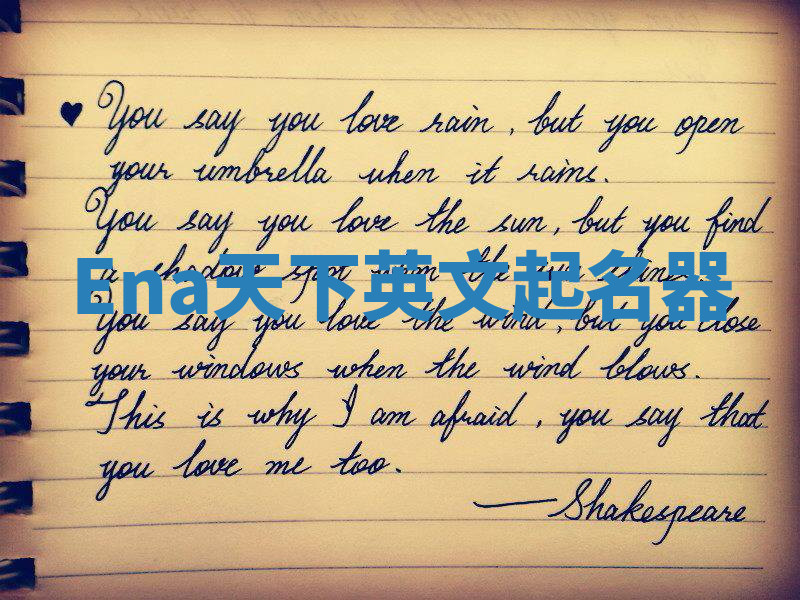 ♥ You say you love rain, but you open
your umbrella when it rains.
You say you love the sun, but you find
a shadow spot when the sun shines.
Ena天下英文起名器
You say you love the wind, but you close
your windows when the wind blows.
This is why I am afraid, you say that
you love me too.
— Shakespeare